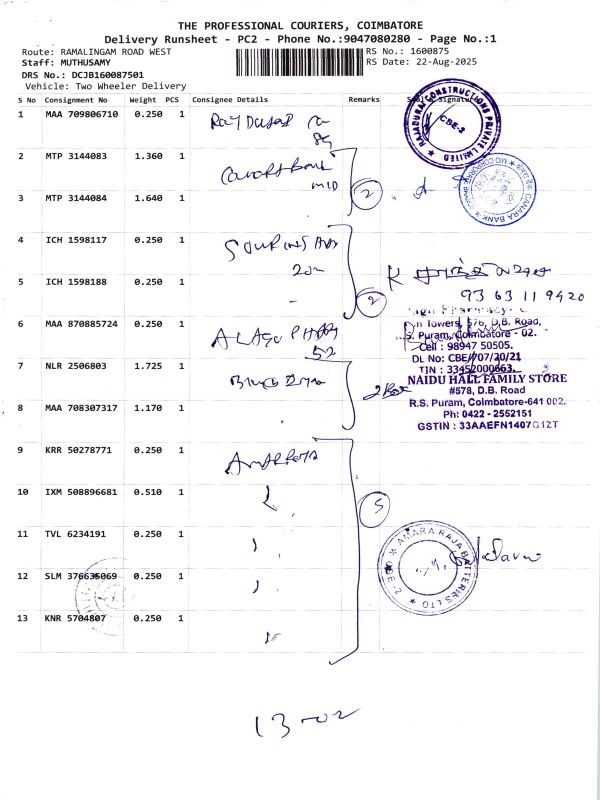 THE PROFESSIONAL COURIERS, COIMBATORE
Delivery Runsheet - PC2 - Phone No.:9047080280 - Page No.:1
Route: RAMALINGAM ROAD WEST
RS No.: 1600875
Staff: MUTHUSAMY
RS Date: 22-Aug-2025
DRS No.: DCJB160087501
Vehicle: Two Wheeler Delivery
S No Consignment No Weight PCS Consignee Details Remarks Signature
1 MAA 709806710 0.250 1
RAJADURAI CONSTRUCTIONS PRIVATE LIMITED
CBE-2
2 MTP 3144083 1.360 1
CANARA BANK
3 MTP 3144084 1.640 1
2
4 ICH 1598117 0.250 1
5 ICH 1598188 0.250 1
93 63 11 9420
2
6 MAA 870885724 0.250 1
D.B. Road,
Puram, Coimbatore - 02.
Cell : 98947 50505.
DL No: CBE/707/20/21
7 NLR 2506803 1.725 1
TIN : 33452000663.
NAIDU HALL FAMILY STORE
#578, D.B. Road
8 MAA 708307317 1.170 1
R.S. Puram, Coimbatore-641 002.
Ph: 0422 - 2552151
GSTIN : 33AAEFN1407G1ZT
9 KRR 50278771 0.250 1
10 IXM 508896681 0.510 1
5
11 TVL 6234191 0.250 1
AMARA RAJA BATTERIES LTD
12 SLM 376635069 0.250 1
13 KNR 5704807 0.250 1